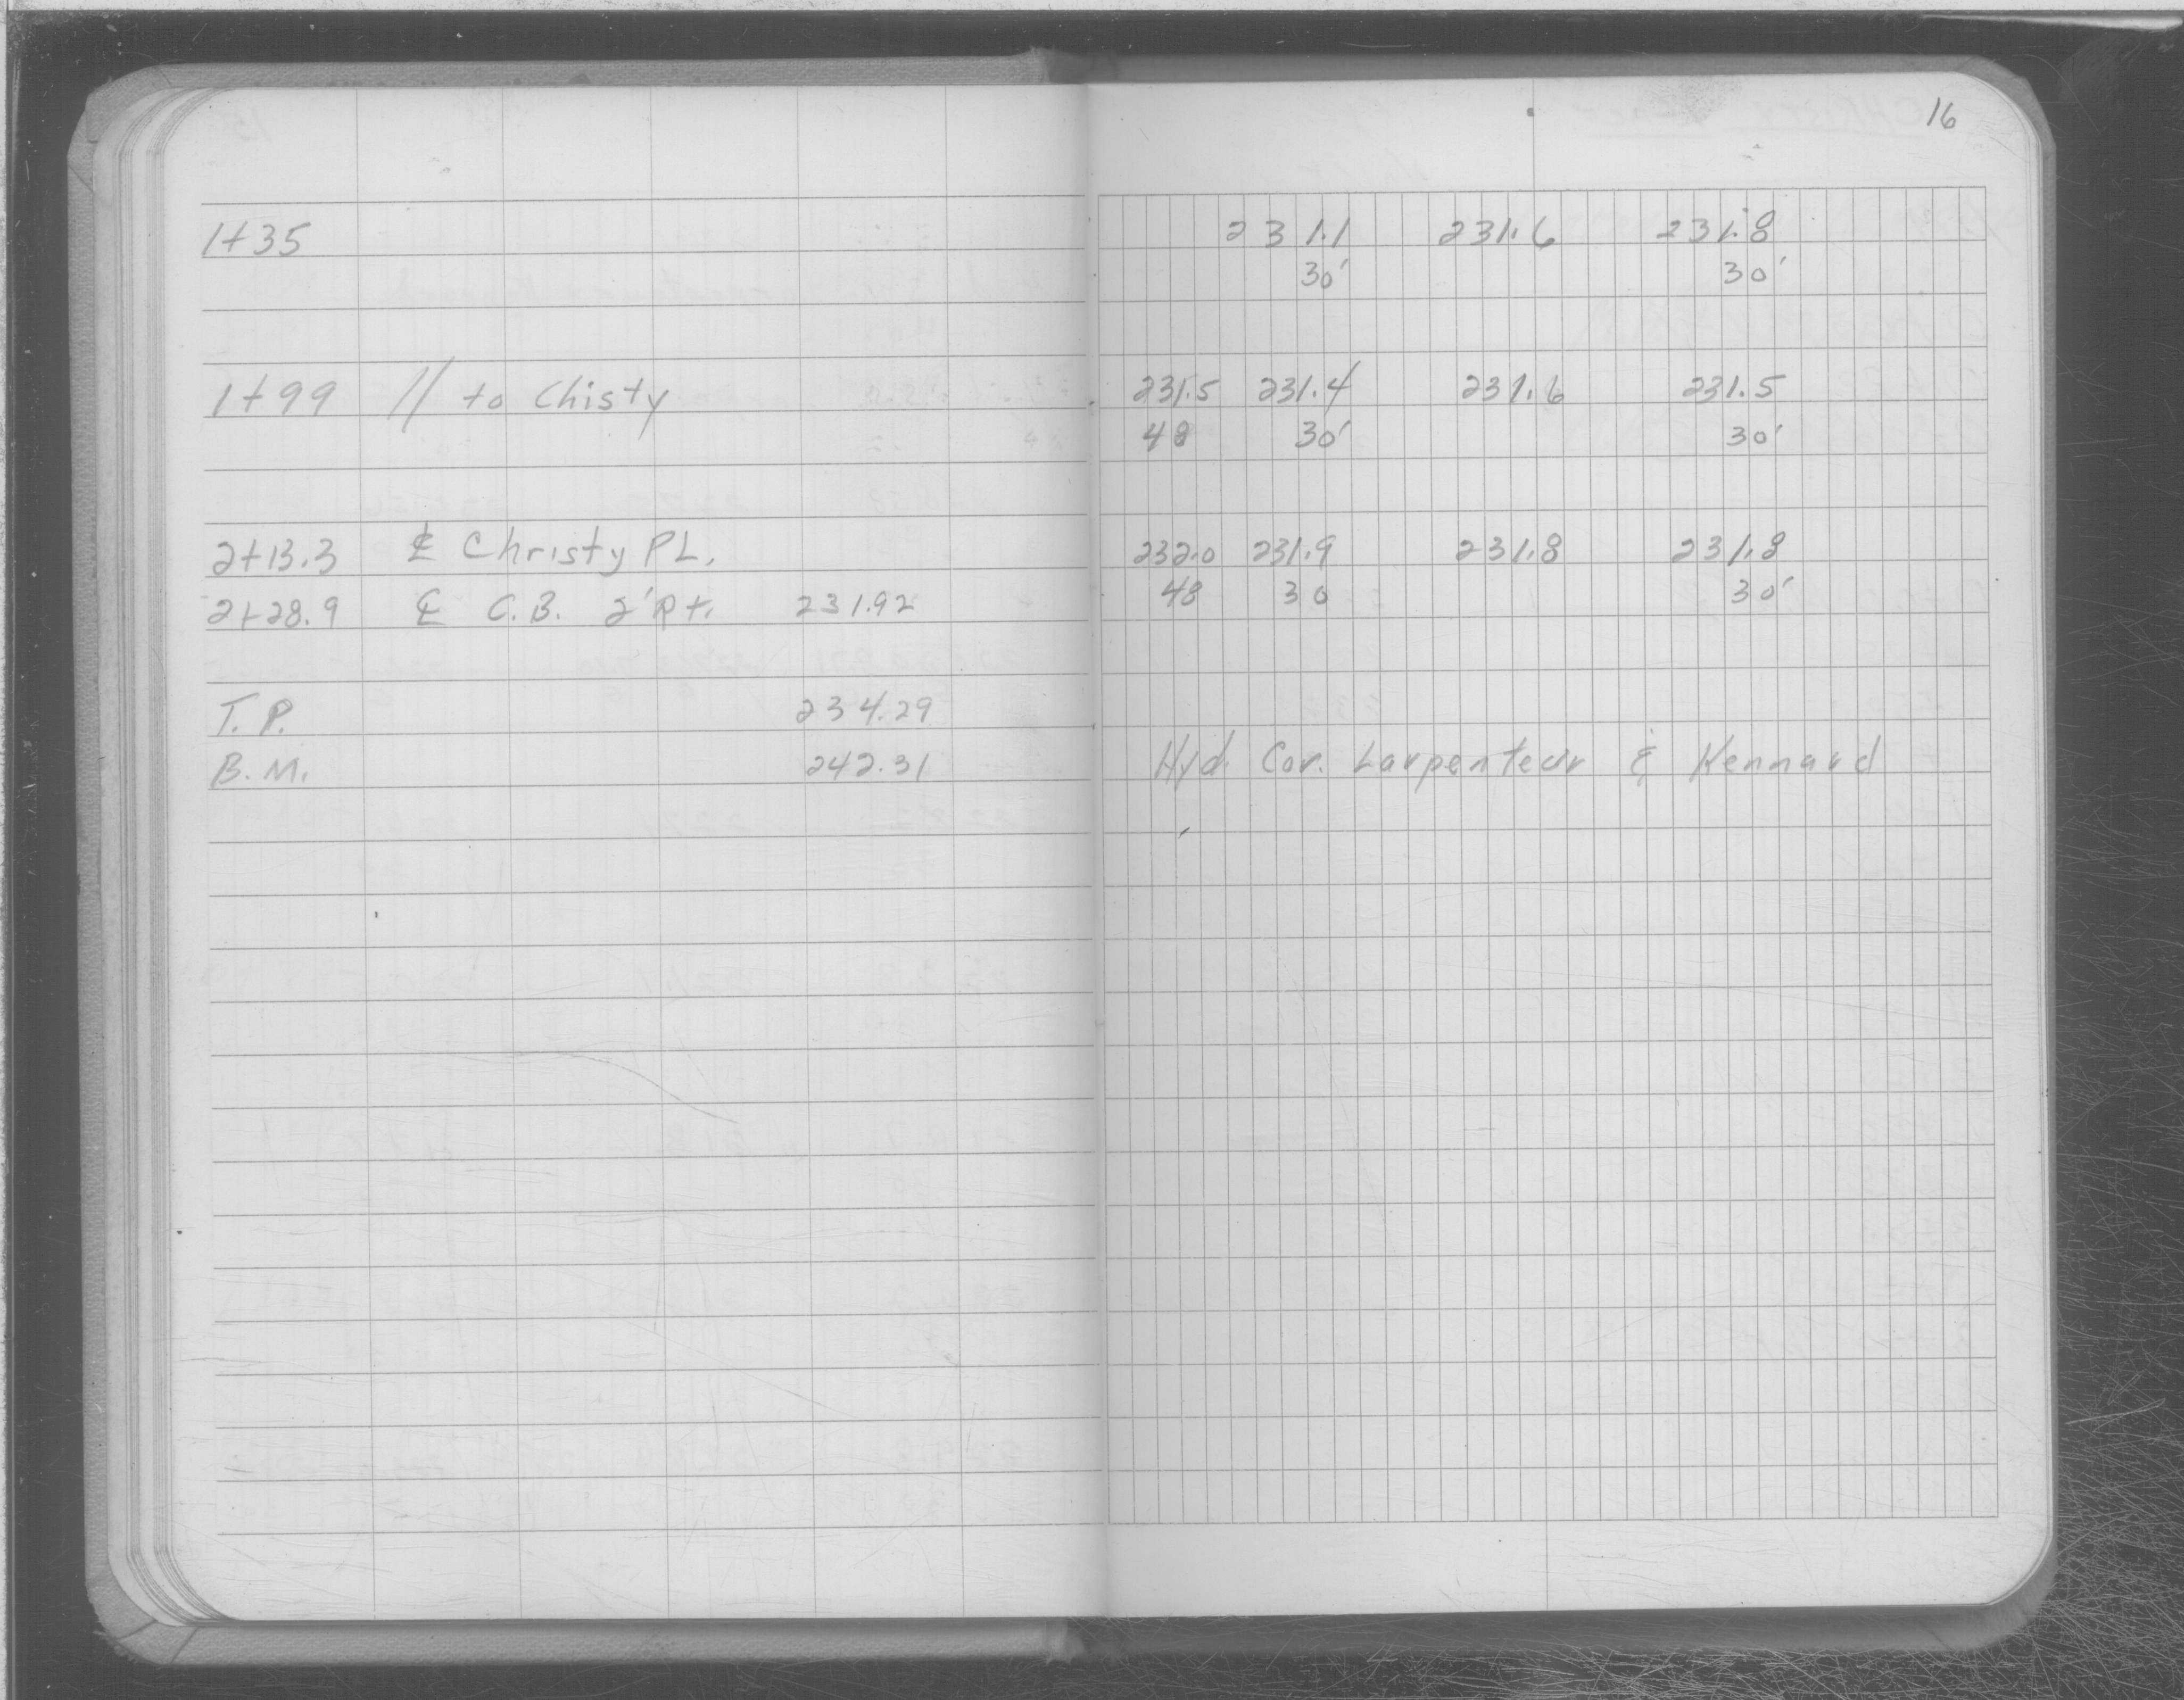 16
1+35 231.1 231.6 231.8
30' 30'
1+99 // to Chisty 231.5 231.4 231.6 231.5
48 30' 30'
2+13.3 ℄ Christy PL. 232.0 231.9 231.8 231.8
2+28.9 ℄ C.B. 2' Rt. 231.92 48 30 30'
T.P. 234.29
B.M. 242.31 Hyd. Cor. Larpenteur & Kennard